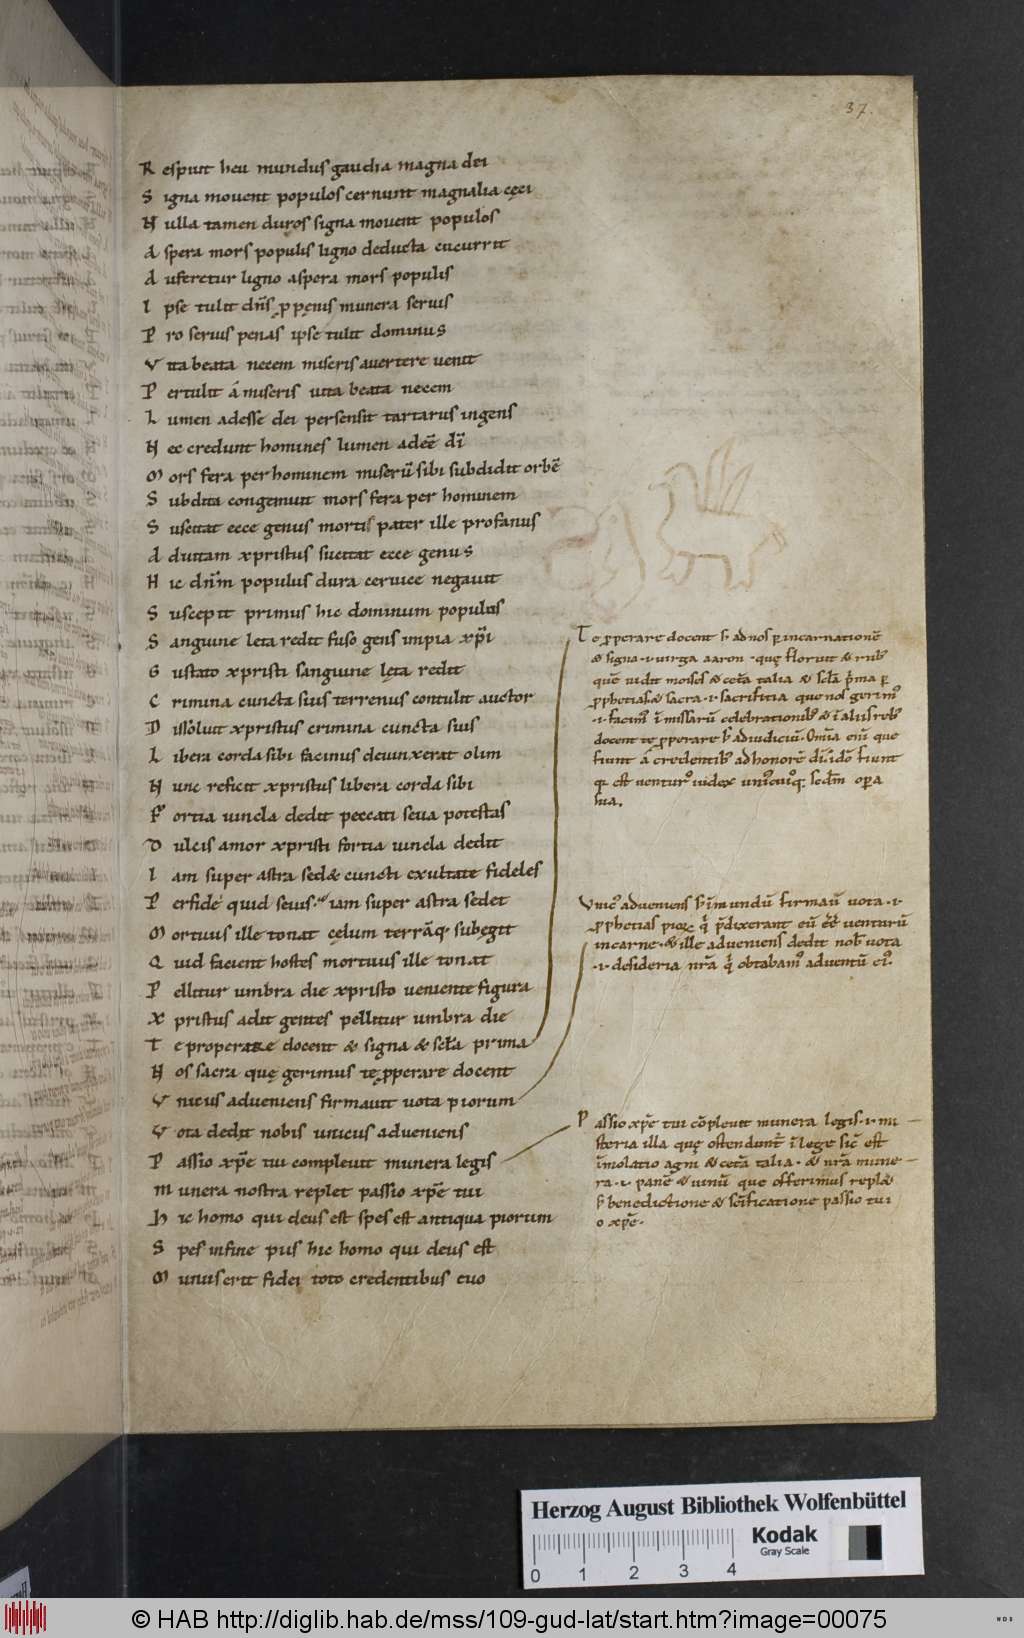 37.
R espuit heu mundus gaudia magna dei
S igna mouent populos cernunt magnalia cęci
N ulla tamen duros signa mouent populos
A spera mors populis ligno deducta cucurrit
A uferetur ligno aspera mors populis
I pse tulit dn̄s ꝓ pęnis munera seruis
P ro seruis penas ipse tulit dominus
V ita beata necem miseris auertere uenit
P ertulit á miseris uita beata necem
L umen adesse dei persensit tartarus ingens
N ec credunt homines lumen adeē dī
M ors fera per hominem miserū sibi subdidit orbē
S ubdita congemuit mors fera per hominem
S uscitat ecce genus mortis pater ille profanus
A d uitam xpristus suscitat ecce genus
H ic dn̄m populus dura ceruice negauit
S uscepit primus hic dominum populus
S anguine leta redit fuso gens impia xp̄i
G ustato xpristi sanguine lęta redit
C rimina cuncta suis terrenus contulit auctor
D issoluit xpristus crimina cuncta suis
L ibera corda sibi facinus deuinxerat olim
N unc reficit xpristus libera corda sibi
F ortia uincla dedit peccati seua potestas
D ulcis amor xpristi fortia uincla dedit
I am super astra sed& cuncti exultate fideles
P erfide quid seuis iam super astra sedet
M ortuus ille tonat cęlum terrāq; subegit
Q uid facient hostes mortuus ille tonat
P ellitur umbra die xpristo ueniente figura
X pristus adit gentes pellitur umbra die
T e properare docent & signa & scr̄a prima
N os sacra quę gerimus te ꝓperare docent
V nicus adueniens firmauit uota piorum
V ota dedit nobis unicus adueniens
P assio xp̄e tui compleuit munera legis
M unera nostra replet passio xp̄e tui
H ic homo qui deus est spes est antiqua piorum
S pes in fine pius hic homo qui deus est
M unus erit fidei toto credentibus euo
T e ꝓperare docent ad nos ꝑ incarnationē
& signa ·i· uirga aaron · quę floruit & rub
quē uidit moises & cet̄a talia & prima
sacra ·i· sacrificia que nos gerim̄
·i· facim̄ ī missarū celebrationib; & ī aliis reb;
docent te ꝓperare ad iudiciū. Om̄ia eni que
fiunt á credentib; ad honorē dī fiunt
est uenturus iudex opera
sua.
Vnic adueniens mundū firmauit uota ·i·
ꝓphetias piorum p̄dixerant eū uenturū
in carne · & ille adueniens dedit nob̄ uota
·i· desideria nr̄a q̄ obtabam aduentū ei.
P assio xp̄e tui cōpleuit munera legis ·i· mi
steria illa quę ostendunt ī lege sic est
īmolatio agni & cet̄a talia · & nr̄a mune
ra ·i· panē & uinū que offerimus repl&
benedictione & sc̄ificatione passio tui
o xp̄e.
Herzog August Bibliothek Wolfenbüttel
Kodak
Gray Scale
0 1 2 3 4
© HAB http://diglib.hab.de/mss/109-gud-lat/start.htm?image=00075